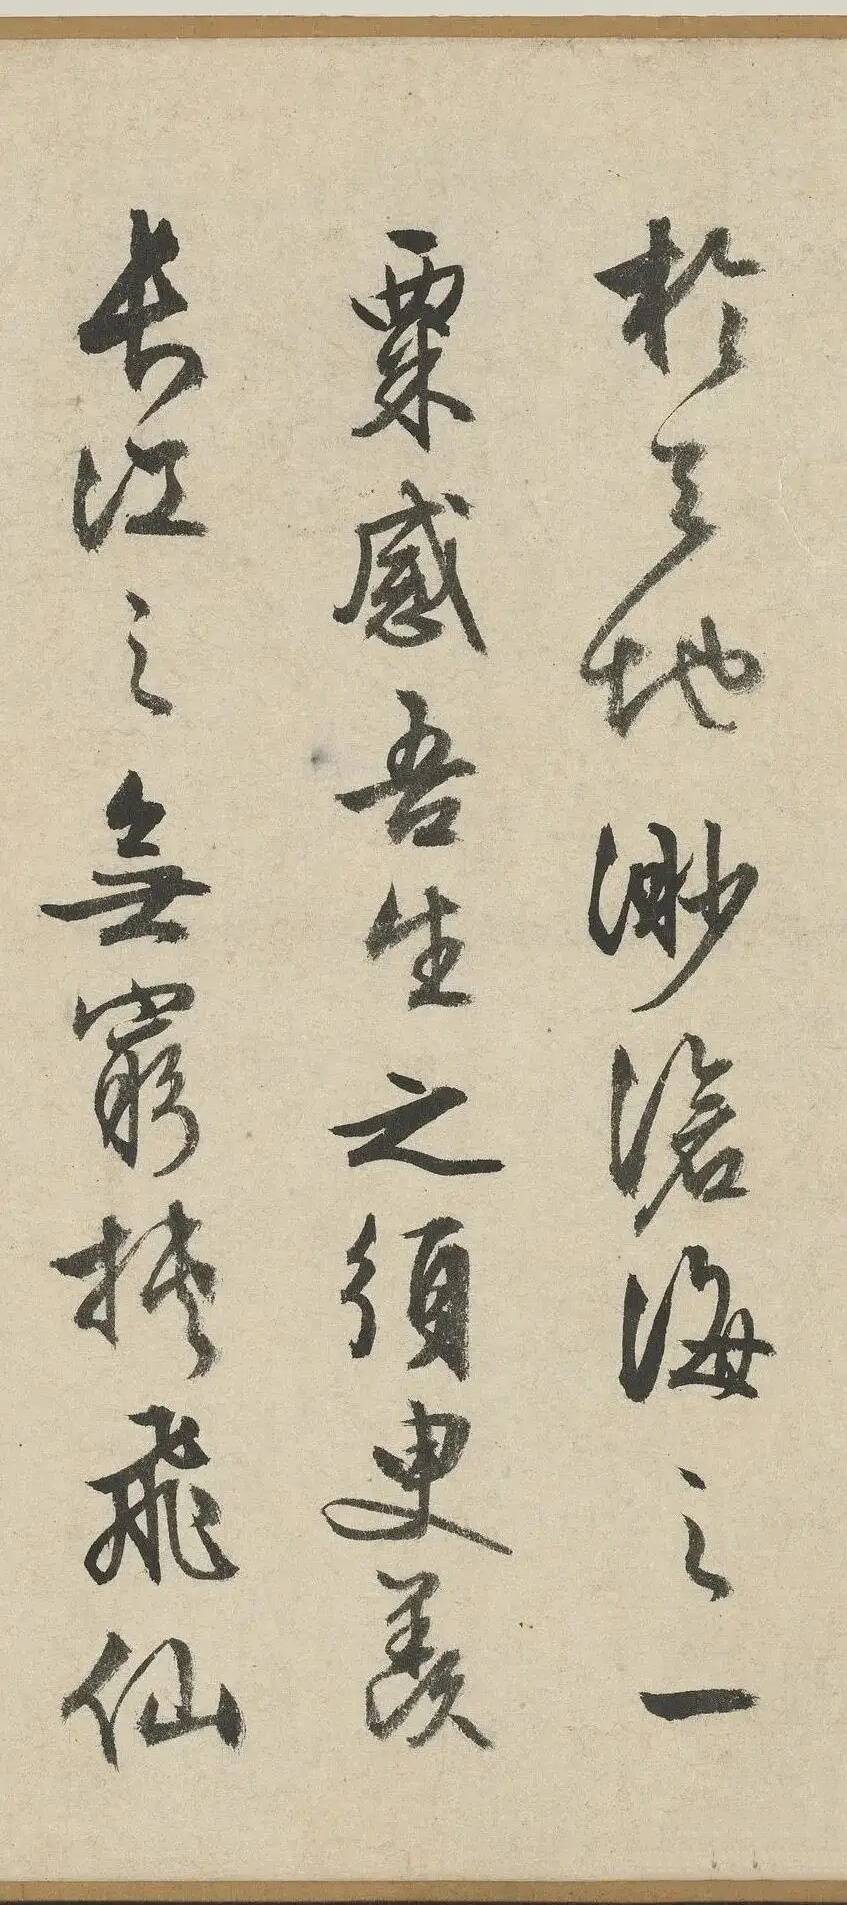 於天地渺滄海之一
粟感吾生之須臾羨
長江之無窮挾飛仙